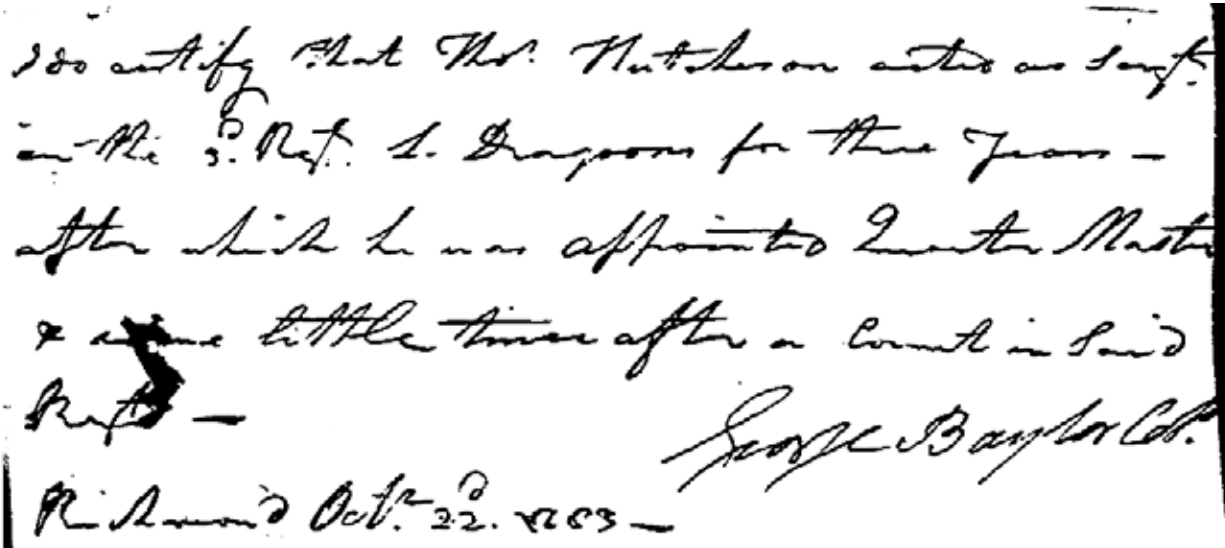 I do certify that Thos. Hutcheson acted as Sergt.
in the 3d. Regt. L. Dragoons for three Years —
after which he was appointed Quarter Master
& some little time after a Cornet in Said
Regt. —
George Baylor Col.
Richmond Octr. 22d. 1783 —